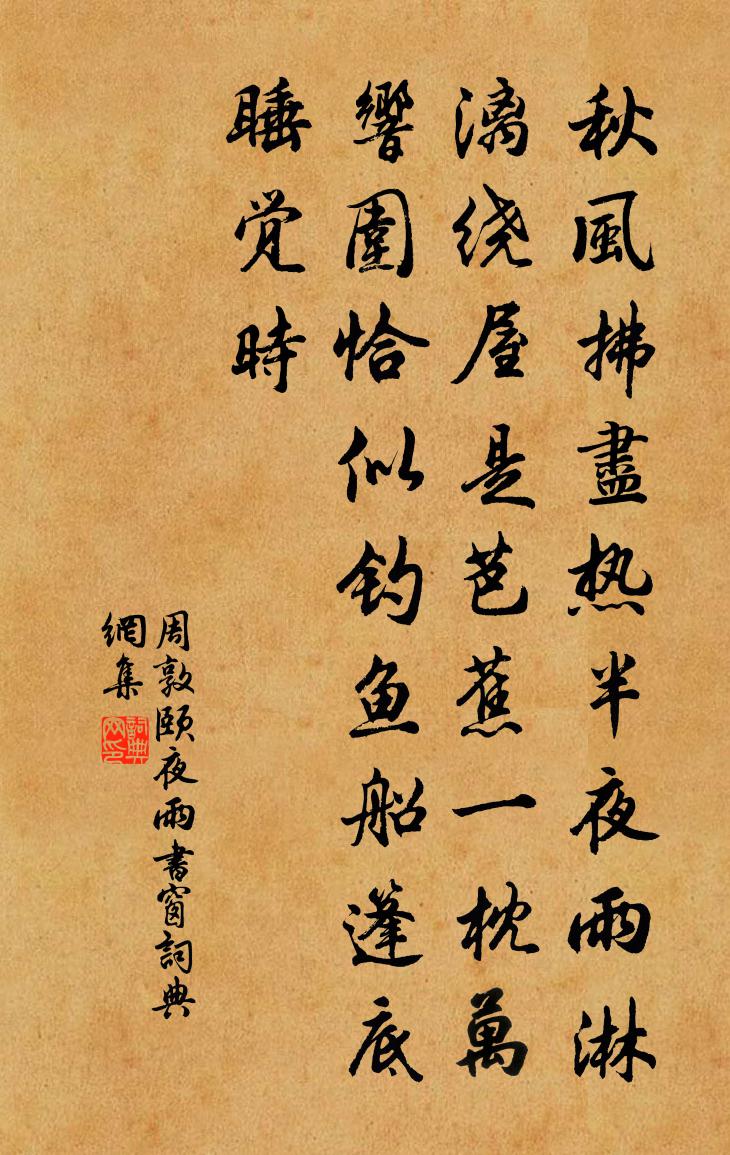 秋風拂盡热半夜雨淋
漓绕屋是芭蕉一枕萬
響圍恰似钓鱼船篷底
睡觉時
周敦颐夜雨書窗詞典
網集
詞典網印